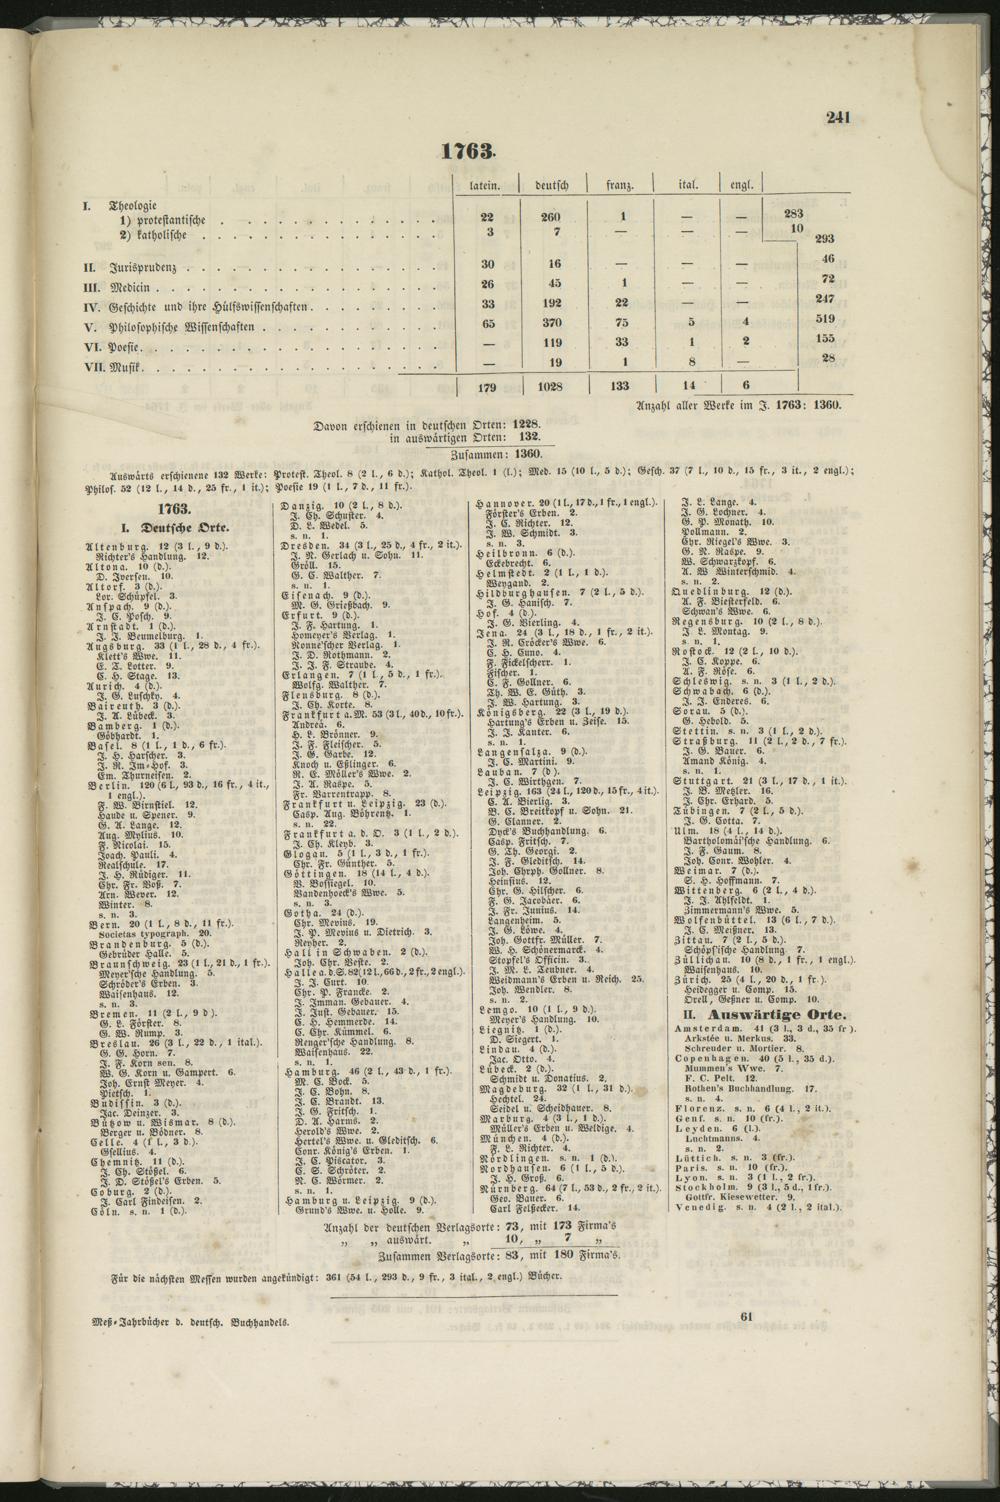 241
1763.
latein. deutsch franz. ital. engl.
I. Theologie
1) protestantische 22 260 1 — — 283
2) katholische 3 7 — — — 10
293
II. Jurisprudenz 30 16 — — — 46
III. Medicin 26 45 1 — — 72
IV. Geschichte und ihre Hülfswissenschaften 33 192 22 — — 247
V. Philosophische Wissenschaften 65 370 75 5 4 519
VI. Poesie — 119 33 1 2 155
VII. Musik — 19 1 8 — 28
179 1028 133 14 6
Anzahl aller Werke im J. 1763: 1360.
Davon erschienen in deutschen Orten: 1228.
in auswärtigen Orten: 132.
Zusammen: 1360.
Auswärts erschienene 132 Werke: Protest. Theol. 8 (2 l., 6 d.); Kathol. Theol. 1 (l.); Med. 15 (10 l., 5 d.); Gesch. 37 (7 l., 10 d., 15 fr., 3 it., 2 engl.);
Philos. 52 (12 l., 14 d., 25 fr., 1 it.); Poesie 19 (1 l., 7 d., 11 fr.).
1763.
I. Deutsche Orte.
Altenburg. 12 (3 l., 9 d.).
Richter's Handlung. 12.
Altona. 10 (d.).
D. Iversen. 10.
Altorf. 3 (d.).
Lor. Schüpfel. 3.
Anspach. 9 (d.).
J. C. Posch. 9.
Arnstadt. 1 (d.).
J. J. Beumelburg. 1.
Augsburg. 33 (1 l., 28 d., 4 fr.).
Klett's Wwe. 11.
E. T. Lotter. 9.
C. H. Stage. 13.
Aurich. 4 (d.).
J. G. Luschky. 4.
Baireuth. 3 (d.).
J. A. Lübeck. 3.
Bamberg. 1 (d.).
Göbhardt. 1.
Basel. 8 (1 l., 1 d., 6 fr.).
J. H. Harscher. 3.
J. R. Im-Hof. 3.
Em. Thurneisen. 2.
Berlin. 120 (6 l., 93 d., 16 fr., 4 it.,
1 engl.).
F. W. Birnstiel. 12.
Haude u. Spener. 9.
G. A. Lange. 12.
Aug. Mylius. 10.
F. Nicolai. 15.
Joach. Pauli. 4.
Realschule. 17.
J. H. Rüdiger. 11.
Chr. Fr. Voß. 7.
Arn. Wever. 12.
Winter. 8.
s. n. 3.
Bern. 20 (1 l., 8 d., 11 fr.).
Societas typograph. 20.
Brandenburg. 5 (d.).
Gebrüder Halle. 5.
Braunschweig. 23 (1 l., 21 d., 1 fr.).
Meyer'sche Handlung. 5.
Schröder's Erben. 3.
Waisenhaus. 12.
s. n. 3.
Bremen. 11 (2 l., 9 d.).
G. L. Förster. 8.
G. W. Rump. 3.
Breslau. 26 (3 l., 22 d., 1 ital.).
G. G. Horn. 7.
J. F. Korn sen. 8.
W. G. Korn u. Gampert. 6.
Joh. Ernst Meyer. 4.
Pietsch. 1.
Budissin. 3 (d.).
Jac. Deinzer. 3.
Bützow u. Wismar. 8 (d.).
Berger u. Bödner. 8.
Celle. 4 (1 l., 3 d.).
Gsellius. 4.
Chemnitz. 11 (d.).
J. Ch. Stößel. 6.
J. D. Stößel's Erben. 5.
Coburg. 2 (d.).
J. Carl Findeisen. 2.
Cöln. s. n. 1 (d.).
Danzig. 10 (2 l., 8 d.).
J. Ch. Schuster. 4.
D. L. Wedel. 5.
s. n. 1.
Dresden. 34 (3 l., 25 d., 4 fr., 2 it.).
J. N. Gerlach u. Sohn. 11.
Gröll. 15.
G. C. Walther. 7.
s. n. 1.
Eisenach. 9 (d.).
M. G. Grießbach. 9.
Erfurt. 9 (d.).
J. F. Hartung. 1.
Homeyer's Verlag. 1.
Nonne'scher Verlag. 1.
J. D. Rothmann. 2.
J. J. F. Straube. 4.
Erlangen. 7 (1 l., 5 d., 1 fr.).
Wolfg. Walther. 7.
Flensburg. 8 (d.).
J. Ch. Korte. 8.
Frankfurt a. M. 53 (3 l., 40 d., 10 fr.).
Andreä. 6.
H. L. Brönner. 9.
J. F. Fleischer. 5.
J. G. Garbe. 12.
Knoch u. Eßlinger. 6.
R. E. Möller's Wwe. 2.
J. A. Raspe. 5.
Fr. Varrentrapp. 8.
Frankfurt u. Leipzig. 23 (d.).
Casp. Aug. Böhrentz. 1.
s. n. 22.
Frankfurt a. d. O. 3 (1 l., 2 d.).
J. Ch. Kleyb. 3.
Glogau. 5 (1 l., 3 d., 1 fr.).
Chr. Fr. Günther. 5.
Göttingen. 18 (14 l., 4 d.).
V. Bossiegel. 10.
Vandenhoeck's Wwe. 5.
s. n. 3.
Gotha. 24 (d.).
Chr. Mevius. 19.
J. P. Mevius u. Dietrich. 3.
Reyher. 2.
Hall in Schwaben. 2 (d.).
Joh. Chr. Beste. 2.
Halle a. d. S. 82 (12 l., 66 d., 2 fr., 2 engl.).
J. J. Curt. 10.
Chr. P. Francke. 2.
J. Imman. Gebauer. 4.
J. Just. Gebauer. 15.
C. H. Hemmerde. 14.
C. Chr. Kümmel. 6.
Renger'sche Handlung. 8.
Waisenhaus. 22.
s. n. 1.
Hamburg. 46 (2 l., 43 d., 1 fr.).
M. C. Bock. 5.
J. C. Bohn. 8.
J. C. Brandt. 13.
J. G. Fritsch. 1.
D. A. Harms. 2.
Herold's Wwe. 2.
Hertel's Wwe. u. Gleditsch. 6.
Conr. König's Erben. 1.
J. C. Piscator. 3.
C. S. Schröter. 2.
N. C. Wörmer. 2.
s. n. 1.
Hamburg u. Leipzig. 9 (d.).
Grund's Wwe. u. Holle. 9.
Hannover. 20 (1 l., 17 d., 1 fr., 1 engl.).
Förster's Erben. 2.
J. C. Richter. 12.
J. W. Schmidt. 3.
s. n. 3.
Heilbronn. 6 (d.).
Eckebrecht. 6.
Helmstedt. 2 (1 l., 1 d.).
Weygand. 2.
Hildburghausen. 7 (2 l., 5 d.).
J. G. Hanisch. 7.
Hof. 4 (d.).
J. G. Vierling. 4.
Jena. 24 (3 l., 18 d., 1 fr., 2 it.).
J. R. Cröcker's Wwe. 6.
C. H. Cuno. 4.
F. Fickelscherr. 1.
Fischer. 1.
C. F. Gollner. 6.
Th. W. E. Güth. 3.
J. W. Hartung. 3.
Königsberg. 22 (3 l., 19 d.).
Hartung's Erben u. Zeise. 15.
J. J. Kanter. 6.
s. n. 1.
Langensalza. 9 (d.).
J. C. Martini. 9.
Lauban. 7 (d).
J. C. Wirthgen. 7.
Leipzig. 163 (24 l., 120 d., 15 fr., 4 it.).
C. A. Bierlig. 3.
B. C. Breitkopf u. Sohn. 21.
G. Clanner. 2.
Dyck's Buchhandlung. 6.
Casp. Fritsch. 7.
G. Th. Georgi. 2.
J. F. Gleditsch. 14.
Joh. Chrph. Gollner. 8.
Heinsius. 12.
Chr. G. Hilscher. 6.
F. G. Jacobäer. 6.
J. Fr. Junius. 14.
Langenheim. 5.
J. G. Löwe. 4.
Joh. Gottfr. Müller. 7.
W. H. Schönermarck. 4.
Stopfel's Officin. 3.
J. M. L. Teubner. 4.
Weidmann's Erben u. Reich. 25.
Joh. Wendler. 8.
s. n. 2.
Lemgo. 10 (1 l., 9 d.).
Meyer's Handlung. 10.
Liegnitz. 1 (d.).
D. Siegert. 1.
Lindau. 4 (d.).
Jac. Otto. 4.
Lübeck. 2 (d.).
Schmidt u. Donatius. 2.
Magdeburg. 32 (1 l., 31 d.).
Hechtel. 24.
Seidel u. Scheidhauer. 8.
Marburg. 4 (3 l., 1 d.).
Müller's Erben u. Weldige. 4.
München. 4 (d.).
F. L. Richter. 4.
Nördlingen. s. n. 1 (d.).
Nordhausen. 6 (1 l., 5 d.).
J. H. Groß. 6.
Nürnberg. 64 (7 l., 53 d., 2 fr., 2 it.).
Geo. Bauer. 6.
Carl Felßecker. 14.
J. L. Lange. 4.
J. G. Lochner. 4.
G. P. Monath. 10.
Pollmann. 2.
Chr. Riegel's Wwe. 3.
G. N. Raspe. 9.
W. Schwarzkopf. 6.
A. W Winterschmid. 4.
s. n. 2.
Quedlinburg. 12 (d.).
A. F. Biesterfeld. 6.
Schwan's Wwe. 6.
Regensburg. 10 (2 l., 8 d.).
J L. Montag. 9.
s. n. 1.
Rostock. 12 (2 l., 10 d.).
J. C. Koppe. 6.
A. F. Röse. 6.
Schleswig. s. n. 3 (1 l., 2 d.).
Schwabach. 6 (d.).
J. J. Enderes. 6.
Sorau. 5 (d.).
G. Hebold. 5.
Stettin. s. n. 3 (1 l., 2 d.).
Straßburg. 11 (2 l., 2 d., 7 fr.).
J. G. Bauer. 6.
Amand König. 4.
s. n. 1.
Stuttgart. 21 (3 l., 17 d., 1 it.).
J. B. Metzler. 16.
J. Chr. Erhard. 5.
Tübingen. 7 (2 l., 5 d.).
J. G. Cotta. 7.
Ulm. 18 (4 l., 14 d.).
Bartholomäi'sche Handlung. 6.
J. F. Gaum. 8.
Joh. Conr. Wohler. 4.
Weimar. 7 (d.).
S. H. Hoffmann. 7.
Wittenberg. 6 (2 l., 4 d.).
J. J. Ahlfeldt. 1.
Zimmermann's Wwe. 5.
Wolfenbüttel. 13 (6 l., 7 d.).
J. C. Meißner. 13.
Zittau. 7 (2 l., 5 d.).
Schöps'ische Handlung. 7.
Züllichau. 10 (8 d., 1 fr., 1 engl.).
Waisenhaus. 10.
Zürich. 25 (4 l., 20 d., 1 fr.).
Heidegger u. Comp. 15.
Orell, Geßner u. Comp. 10.
II. Auswärtige Orte.
Amsterdam. 41 (3 l., 3 d., 35 fr ).
Arkstée u. Merkus. 33.
Schreuder u. Mortier. 8.
Copenhagen. 40 (5 l., 35 d.).
Mummen's Wwe. 7.
F. C. Pelt. 12.
Rothen's Buchhandlung. 17.
s. n. 4.
Florenz. s. n. 6 (4 l., 2 it.).
Genf. s. n. 10 (fr.).
Leyden. 6 (l.).
Luchtmanns. 4.
s. n. 2.
Lüttich. s. n. 3 (fr.).
Paris. s. n. 10 (fr.).
Lyon. s. n. 3 (1 l., 2 fr.).
Stockholm. 9 (3 l., 5 d., 1 fr.).
Gottfr. Kiesewetter. 9.
Venedig. s. n. 4 (2 l., 2 ital.).
Anzahl der deutschen Verlagsorte: 73, mit 173 Firma's
„ „ auswärt. „ 10, „ 7 „
Zusammen Verlagsorte: 83, mit 180 Firma's.
Für die nächsten Messen wurden angekündigt: 361 (54 l., 293 d., 9 fr., 3 ital., 2 engl.) Bücher.
Meß-Jahrbücher d. deutsch. Buchhandels.
61